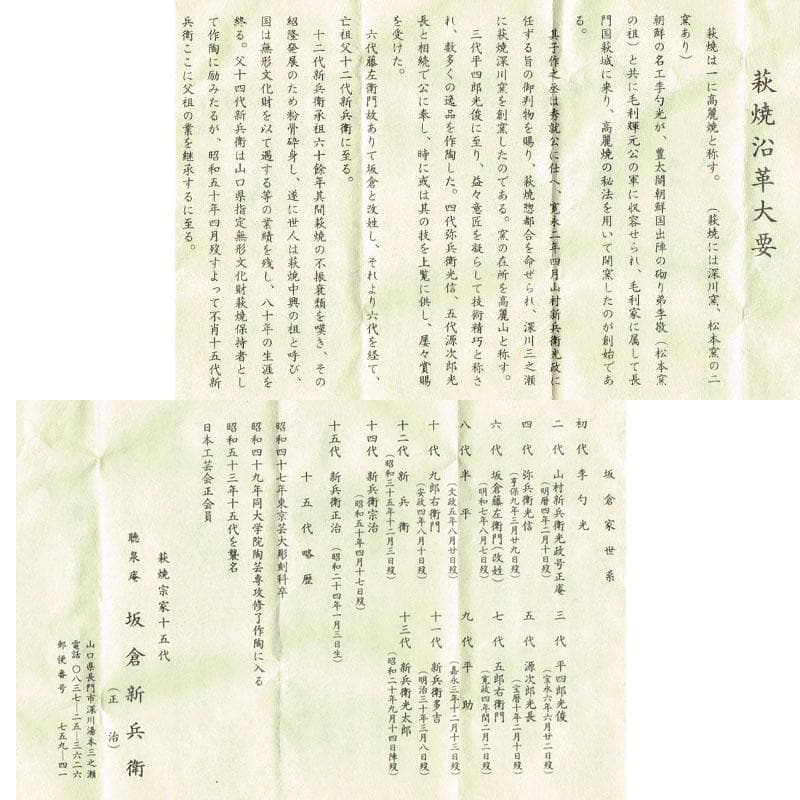 萩焼沿革大要
萩焼は一に高麗焼と称す。　（萩焼には深川窯、松本窯の二
窯あり）
朝鮮の名工李勺光が、豊太閤朝鮮国出陣の砌り弟李敬（松本窯
の祖）と共に毛利輝元公の軍に収容せられ、毛利家に属して長
門国萩城に来り、高麗焼の秘法を用いて開窯したのが創始であ
る。
其子作之丞は秀就公に仕へ、寛永二年四月山村新兵衛光政に
任ずる旨の御判物を賜り、萩焼惣都合を命ぜられ、深川三之瀬
に萩焼深川窯を創窯したのである。窯の在所を高麗山と称す。
三代平四郎光俊に至り、益々意匠を凝らして技術精巧と称さ
れ、数多くの逸品を作陶した。四代弥兵衛光信、五代源次郎光
長と相続で公に奉し、時に或は其の技を上覧に供し、屡々賞賜
を受けた。
六代藤左衛門故ありて坂倉と改姓し、それより六代を経て、
亡祖父十二代新兵衛に至る。
十二代新兵衛承祖六十餘年其間萩焼の不振衰頽を嘆き、その
紹隆発展のため粉骨砕身し、遂に世人は萩焼中興の祖と呼び、
国は無形文化財を以て遇する等の業績を残し、八十年の生涯を
終る。父十四代新兵衛は山口県指定無形文化財萩焼保持者とし
て作陶に励みたるが、昭和五十年四月歿すよって不肖十五代新
兵衛ここに父祖の業を継承するに至る。
坂倉家世系
初代 李勺光
二代 山村新兵衛光政号正庵
（明暦四年二月十日歿）
三代 平四郎光俊
（宝永六年六月廿二日歿）
四代 弥兵衛光信
（享保九年三月廿九日歿）
五代 源次郎光長
（宝暦十年二月十日歿）
六代 坂倉藤左衛門（改姓）
（明和七年八月七日歿）
七代 五郎右衛門
（寛政四年閏二月二日歿）
八代 半平
（文政五年八月廿日歿）
九代 平助
（嘉永三年十二月十三日歿）
十代 九郎右衛門
（安政四年八月十日歿）
十一代 新兵衛多吉
（明治三十年三月八日歿）
十二代 新兵衛
（昭和三十五年十二月三日歿）
十三代 新兵衛光太郎
（昭和二十年九月十四日陣歿）
十四代 新兵衛治
（昭和五十年四月十七日歿）
十五代 新兵衛正治（昭和二十四年一月三日生）
十五代略歴
昭和四十七年東京芸大彫刻科卒
昭和四十九年同大学院陶芸専攻修了作陶に入る
昭和五十三年十五代を襲名
日本工芸会正会員
萩焼宗家十五代
聴泉庵 坂倉新兵衛
（正治）
山口県長門市深川湯本三之瀬
電話〇八三七-二五-三六二六
郵便番号 七五九-四一